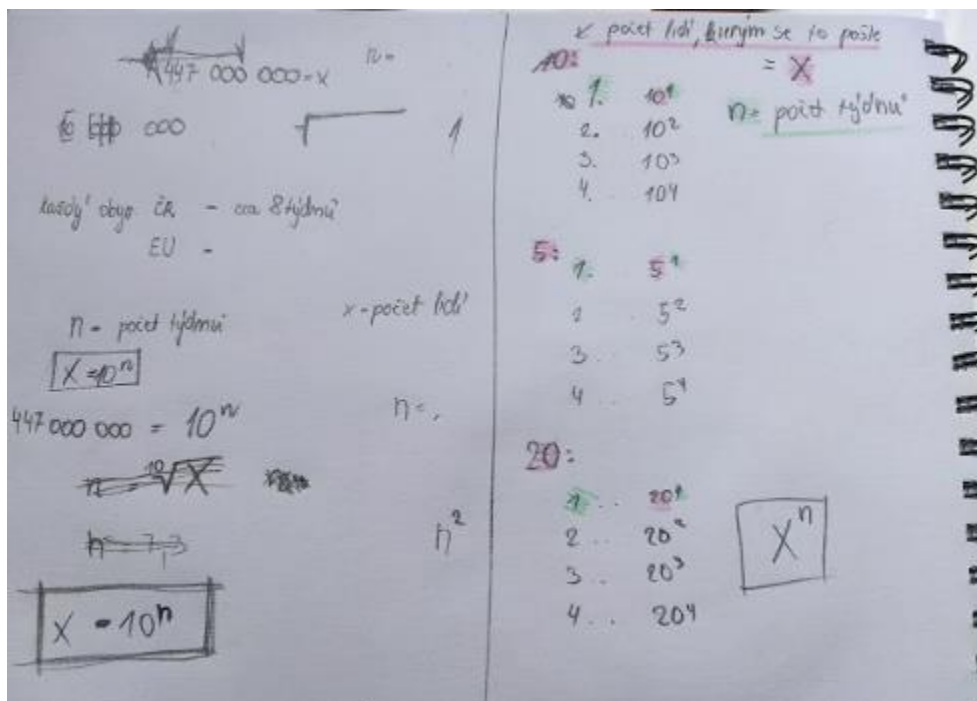 447 000 000 = x
n =
000
1
každý obyv ČR - cca 8 týdnů
EU -
n - počet týdnů
x - počet lidí
X = 10ⁿ
447 000 000 = 10ⁿ
n = .
n²
X = 10ⁿ
počet lidí, kterým se to pošle
= X
n = počet týdnů
10:
1. 10¹
2. 10²
3. 10³
4. 10⁴
5:
1. 5¹
2 . 5²
3 . . 5³
4 . 5⁴
20:
1 . . 20¹
2 . . 20²
3 . . 20³
4 . . 20⁴
Xⁿ